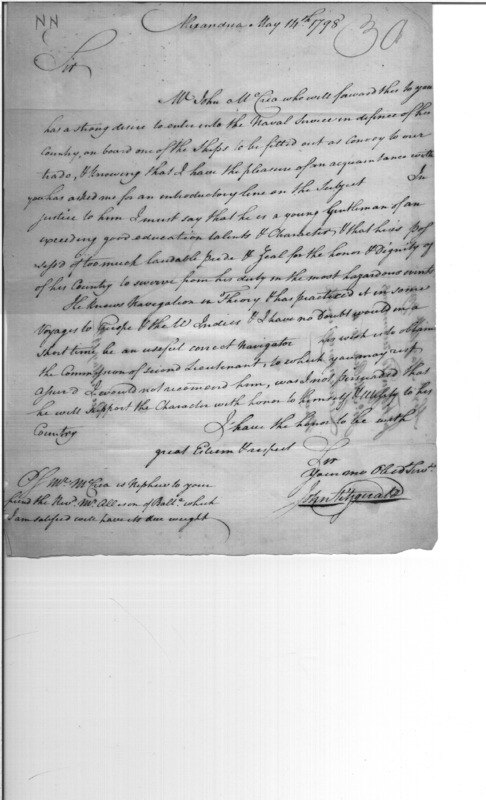 NN
Alexandria May 14th 1798
30
Sir
Mr John McCrea who will forward this to you
has a strong desire to enter into the Naval Service in defence of his
Country, on board one of the Ships to be fitted out as Convoy to our
trade, & knowing that I have the pleasure of an acquaintance with
you has asked me for an introductory line on the Subject In
justice to him I must say that he is a young Gentleman of an
exceeding good education talents & Character, & that he is Pos
sess'd of too much laudable pride & Zeal for the honor & Dignity of
of his Country to swerve from his duty in the most hazardous events
He knows Navigation in Theory & has practised it in some
Voyages to Europe & the W Indies & I have no Doubt would in a
short time be an useful correct Navigator his wish is to obtain
the Commission of second Lieutenant, to which you may rest
assur'd I would not recomend him, was I not persuaded that
he will support the Character with honor to himself & Utility to his
Country
I have the honor to be with
great Esteem & respect
Sir
Your mo Obedt Servt
John Fitzgerald
PS Mr McCrea is Nephew to your
friend the Revd Mr Allison of Balte which
I am satisfied will have its due weight